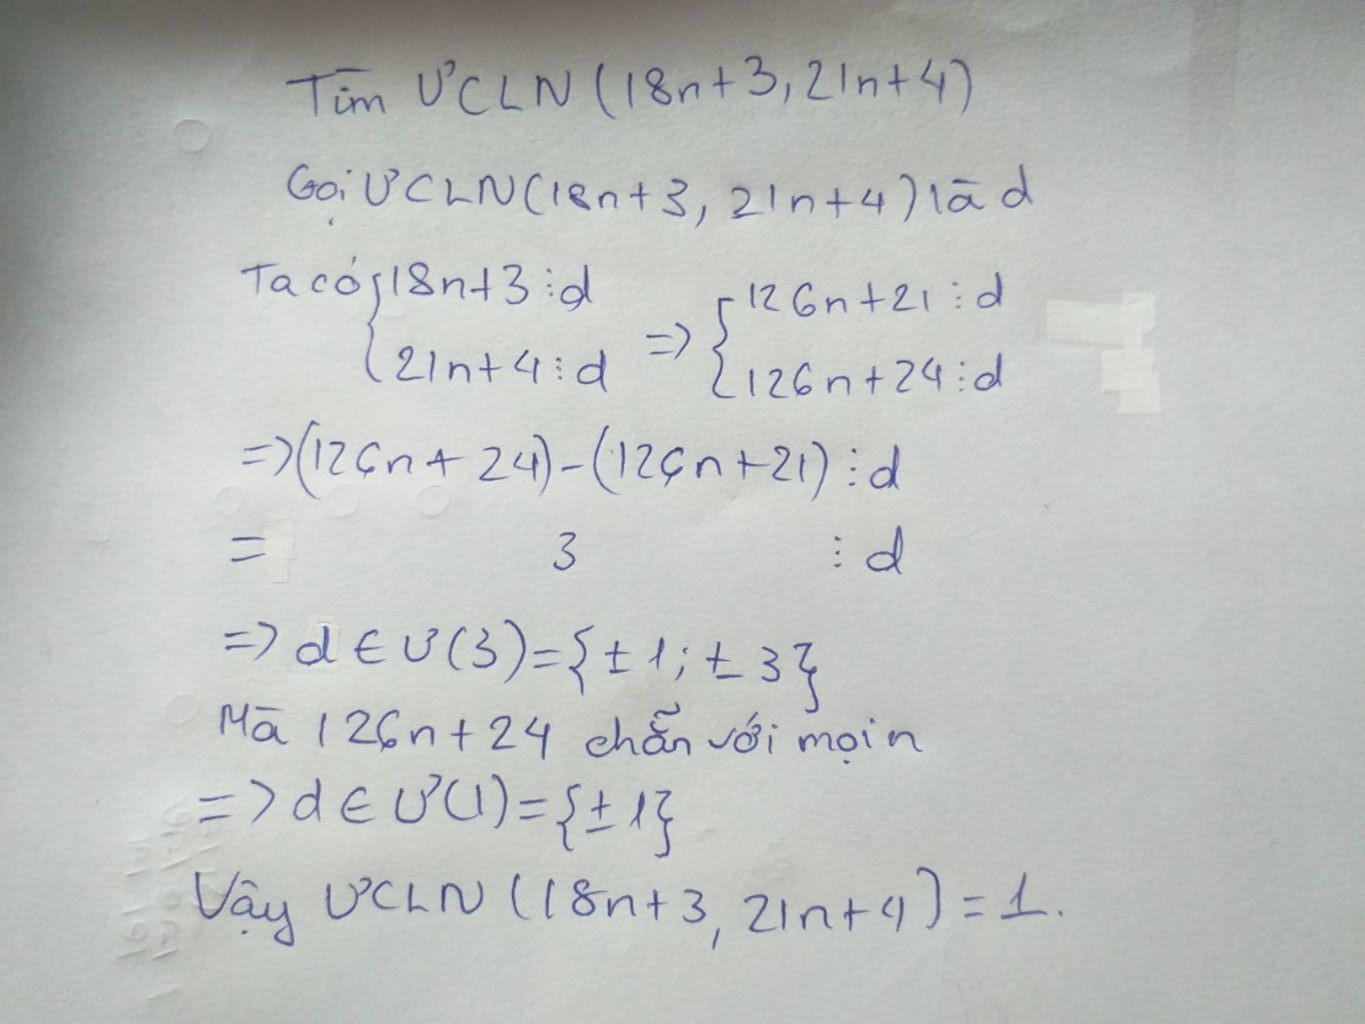 Tìm ƯCLN (18n+3, 21n+4)
Gọi ƯCLN(18n+3, 21n+4) là d
Ta có { 18n+3 ⋮ d => { 126n+21 ⋮ d
{ 21n+4 ⋮ d { 126n+24 ⋮ d
=> (126n+24)-(126n+21) ⋮ d
= 3 ⋮ d
=> d ∈ Ư(3)={±1; ±3}
Mà 126n+24 chẵn với mọi n
=> d ∈ Ư(1)={±1}
Vậy ƯCLN (18n+3, 21n+4)=1.